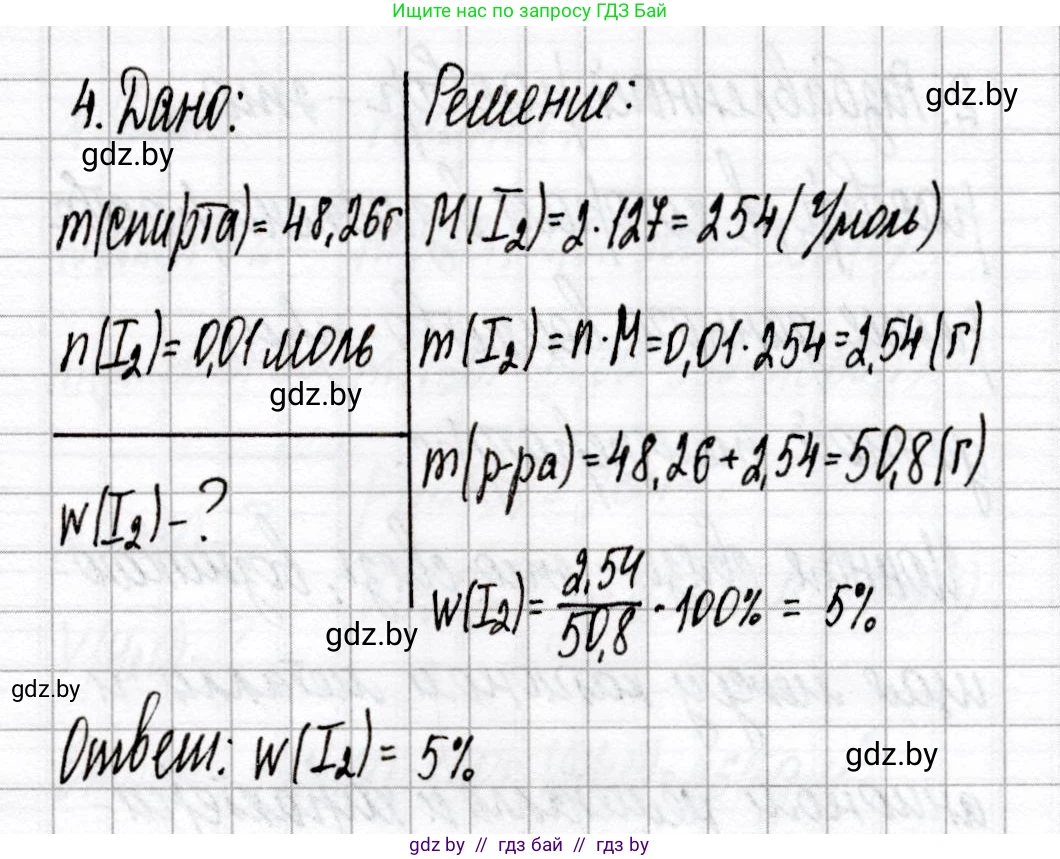 Ищите нас по запросу ГДЗ Бай
4. Дано:
gdz.by
m(спирта) = 48,26г
n(I₂) = 0,01 моль
gdz.by
w(I₂) - ?
Решение:
gdz.by
M(I₂) = 2 · 127 = 254 (г/моль)
m(I₂) = n · M = 0,01 · 254 = 2,54 (г)
m(р-ра) = 48,26 + 2,54 = 50,8 (г)
w(I₂) = 2,54/50,8 · 100% = 5%
gdz.by
gdz.by
Ответ: w(I₂) = 5%
gdz.by
gdz.by // гдз бай // гдз by